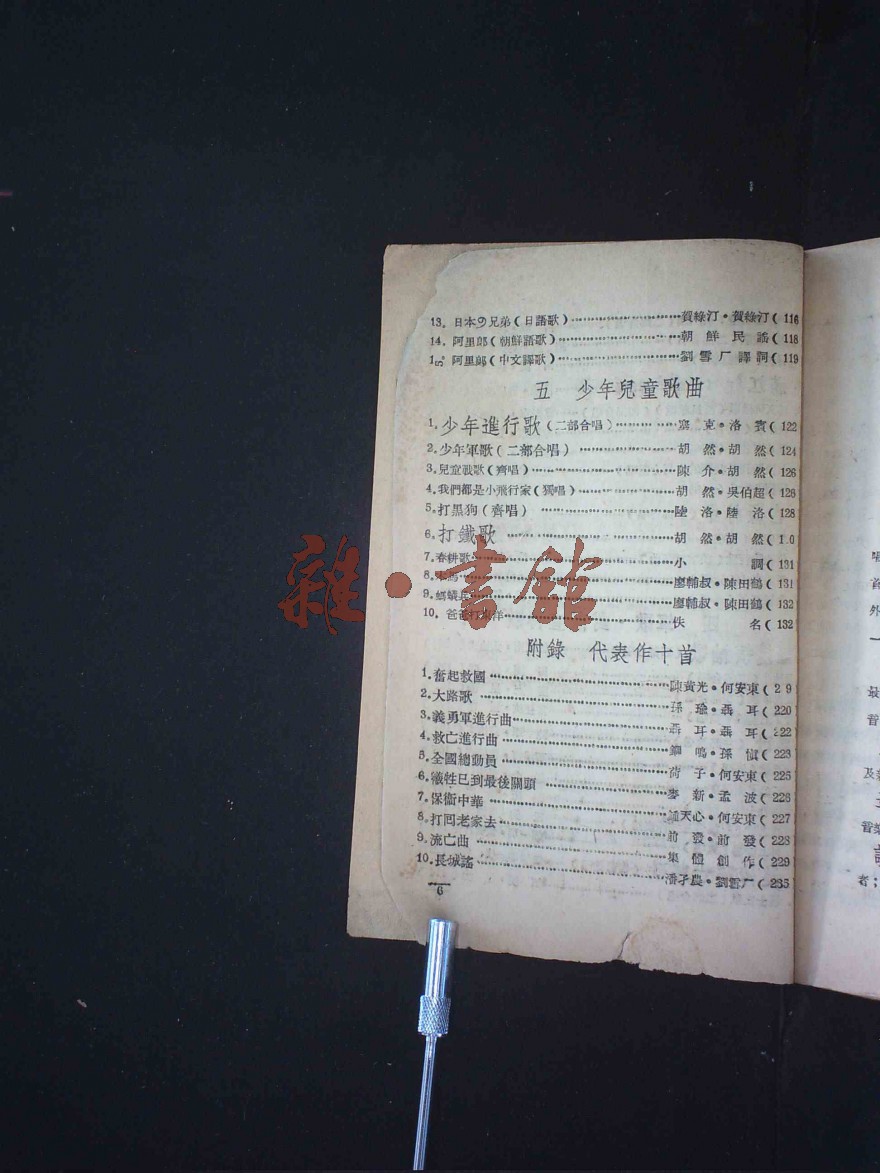 13. 日本の兄弟（日語歌）……賀綠汀・賀綠汀( 116
14. 阿里郎（朝鮮語歌）……朝鮮民謠( 118
15. 阿里郎（中文譯歌）……劉雪厂譯詞( 119
五 少年兒童歌曲
1. 少年進行歌（二部合唱）……塞克・洛賓( 122
2. 少年軍歌（二部合唱）……胡然・胡然( 124
3. 兒童戰歌（齊唱）……陳介・胡然( 126
4. 我們都是小飛行家（獨唱）……胡然・吳伯超( 126
5. 打黑狗（齊唱）……陸洛・陸洛( 128
6. 打鐵歌……胡然・胡然( 1 0
7. 春耕歌……小調( 131
8. ……廖輔叔・陳田鶴( 131
9. 螞蟻兵……廖輔叔・陳田鶴( 132
10. 爸爸打東洋……佚名( 132
附錄 代表作十首
1. 奮起救國……陳黃光・何安東( 2 9
2. 大路歌……孫瑜・聶耳( 220
3. 義勇軍進行曲……聶耳・聶耳( 222
4. 救亡進行曲……鋼鳴・孫慎( 223
5. 全國總動員……荷子・何安東( 225
6. 犧牲已到最後關頭……麥新・孟波( 226
7. 保衞中華……天心・何安東( 227
8. 打囘老家去……前發・前發( 228
9. 流亡曲……集體創作( 229
10. 長城謠……潘孑農・劉雪厂( 235
6
雜・書館